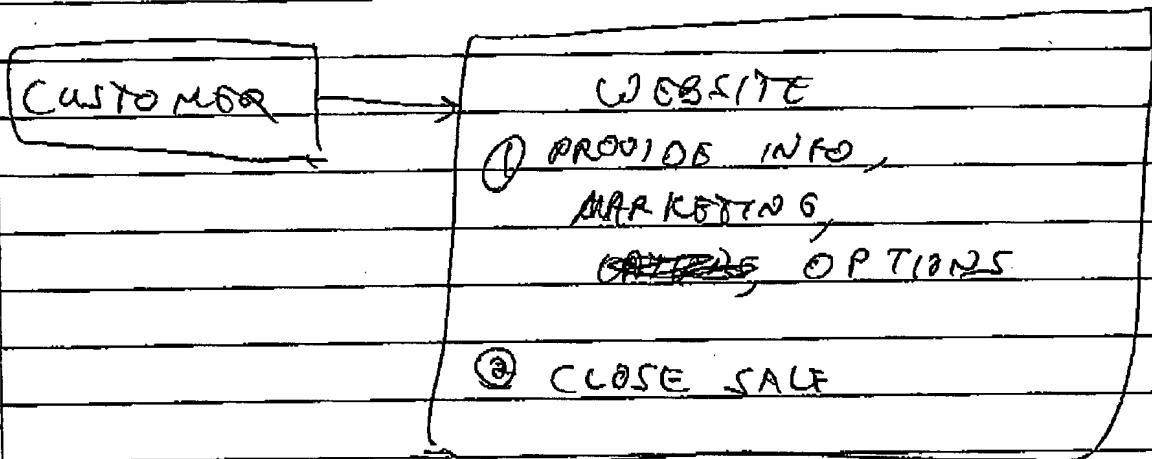 CUSTOMER
WEBSITE
① PROVIDE INFO,
MARKETING,
, OPTIONS
② CLOSE SALE